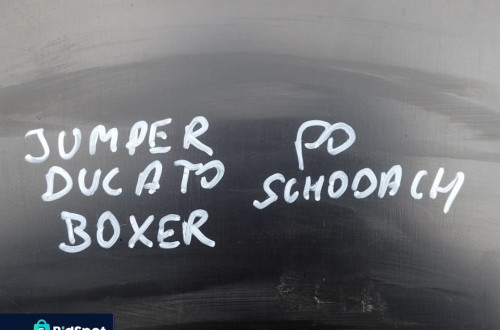 JUMPER
DUCATO
BOXER
PO
SCHODACH
BidSpot